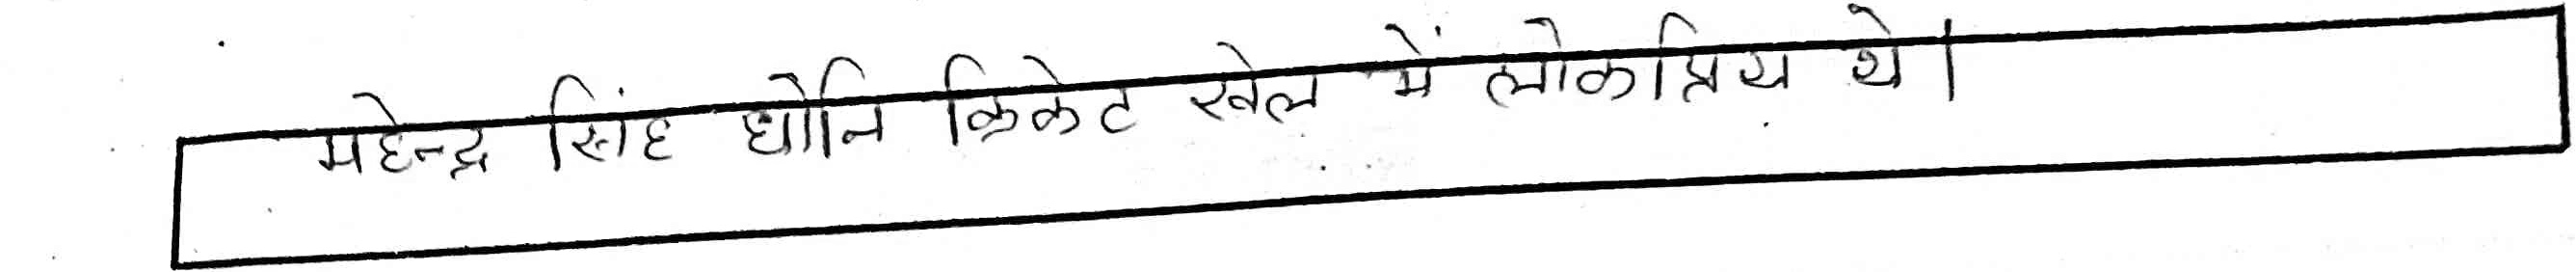 महेन्द्र सिंह धोनि क्रिकेट खेल में लोकप्रिय थे।